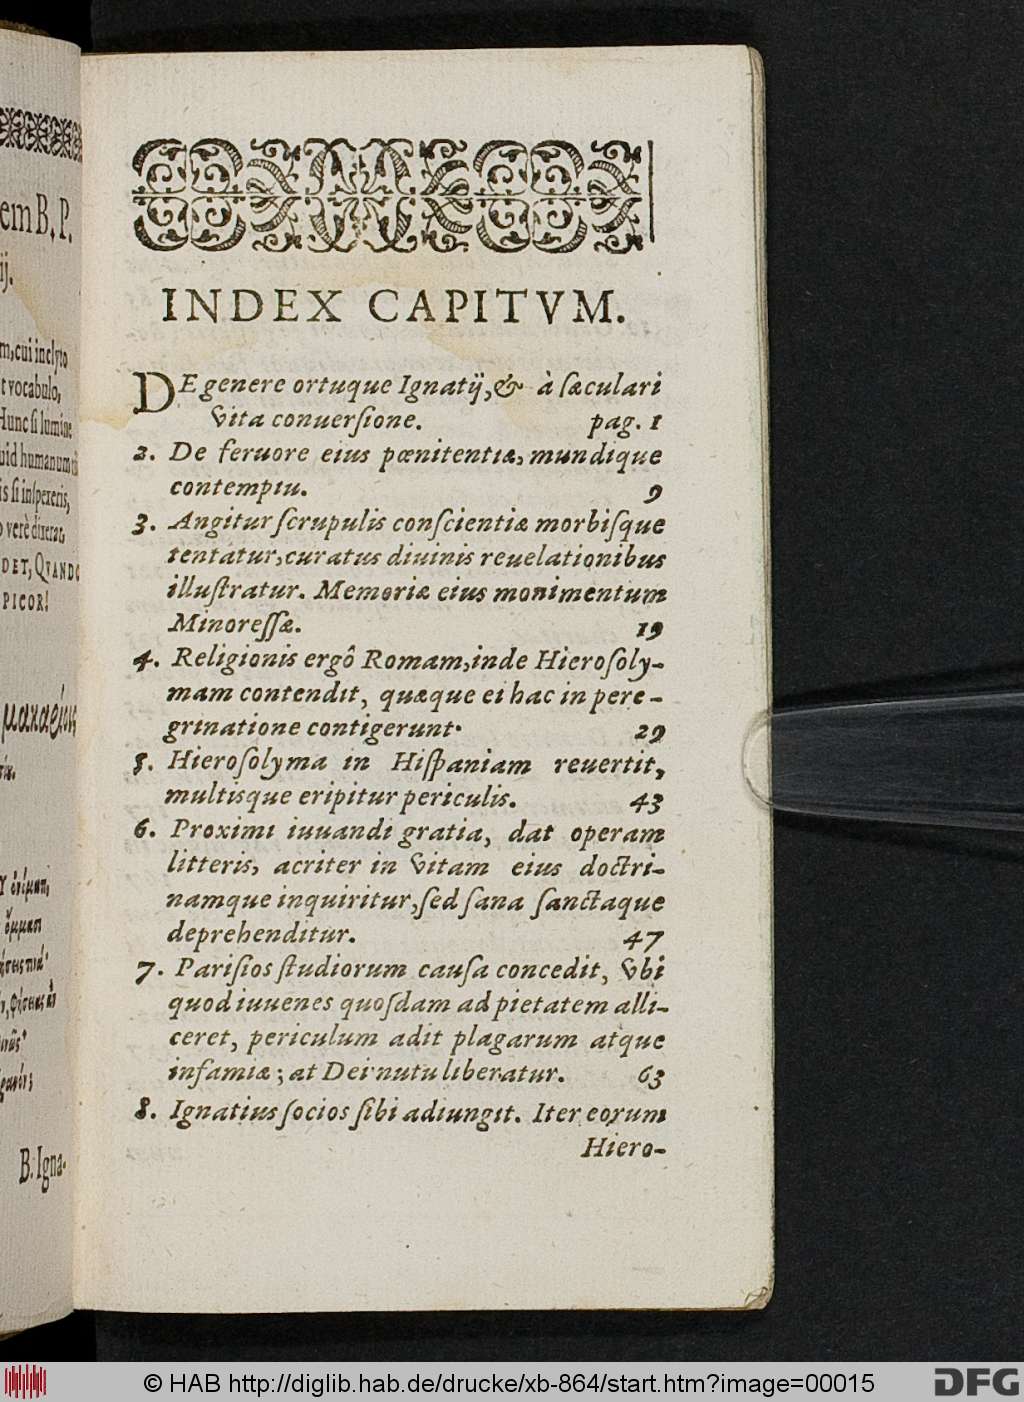 em B. P.
ij.
m, cui inclyto
t vocabulo,
Hunc si lumine
uid humanum
is si inspexeris,
o verè dixerat,
DET, QVANDO
PICOR!
B. Igna-
INDEX CAPITVM.
DE genere ortuque Ignatij, & à sæculari
vita conuersione. pag. 1
2. De feruore eius pœnitentiæ, mundique
contemptu. 9
3. Angitur scrupulis conscientiæ morbisque
tentatur, curatus diuinis reuelationibus
illustratur. Memoriæ eius monimentum
Minoressæ. 19
4. Religionis ergô Romam, inde Hierosoly-
mam contendit, quæque ei hac in pere-
grinatione contigerunt. 29
5. Hierosolyma in Hispaniam reuertit,
multisque eripitur periculis. 43
6. Proximi iuuandi gratia, dat operam
litteris, acriter in vitam eius doctri-
namque inquiritur, sed sana sanctaque
deprehenditur. 47
7. Parisios studiorum causa concedit, vbi
quod iuuenes quosdam ad pietatem alli-
ceret, periculum adit plagarum atque
infamiæ; at Dei nutu liberatur. 63
8. Ignatius socios sibi adiungit. Iter eorum
Hiero-
© HAB http://diglib.hab.de/drucke/xb-864/start.htm?image=00015
DFG